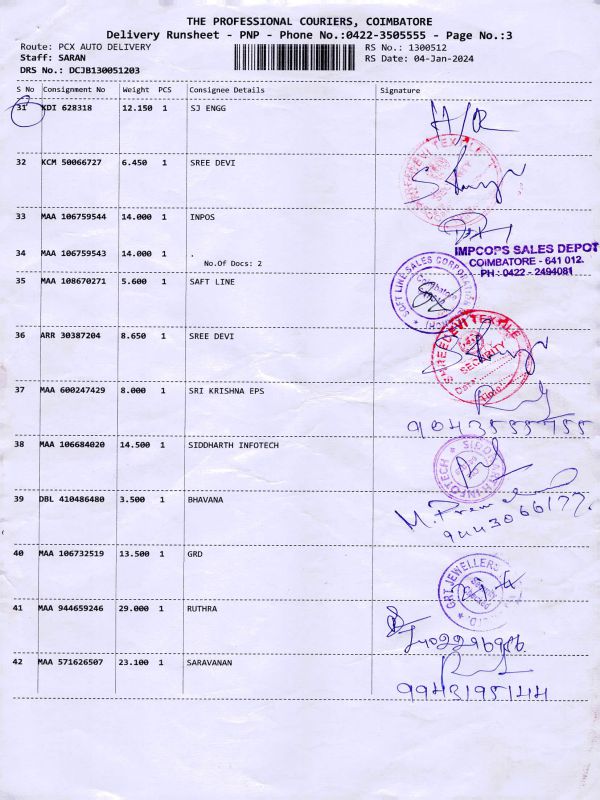 THE PROFESSIONAL COURIERS, COIMBATORE
Delivery Runsheet - PNP - Phone No.:0422-3505555 - Page No.:3
Route: PCX AUTO DELIVERY RS No.: 1300512
Staff: SARAN RS Date: 04-Jan-2024
DRS No.: DCJB130051203
S No Consignment No Weight PCS Consignee Details Signature
31 KDI 628318 12.150 1 SJ ENGG
32 KCM 50066727 6.450 1 SREE DEVI
SHREEDEVI TEXTILE
SECURITY
33 MAA 106759544 14.000 1 INPOS
34 MAA 106759543 14.000 1 .
No.Of Docs: 2
IMPCOPS SALES DEPOT
COIMBATORE - 641 012.
PH : 0422 - 2494081
35 MAA 108670271 5.600 1 SAFT LINE
SOFT LINE SALES CORPORATION
Coimbatore
36 ARR 30387204 8.650 1 SREE DEVI
SHREEDEVI TEXTILE
SECURITY
Date
Time
37 MAA 600247429 8.000 1 SRI KRISHNA EPS
9043555755
38 MAA 106684020 14.500 1 SIDDHARTH INFOTECH
SIDDHARTH INFOTECH
39 DBL 410486480 3.500 1 BHAVANA
9443066177
40 MAA 106732519 13.500 1 GRD
JEWELLERS
41 MAA 944659246 29.000 1 RUTHRA
42 MAA 571626507 23.100 1 SARAVANAN
9943195144